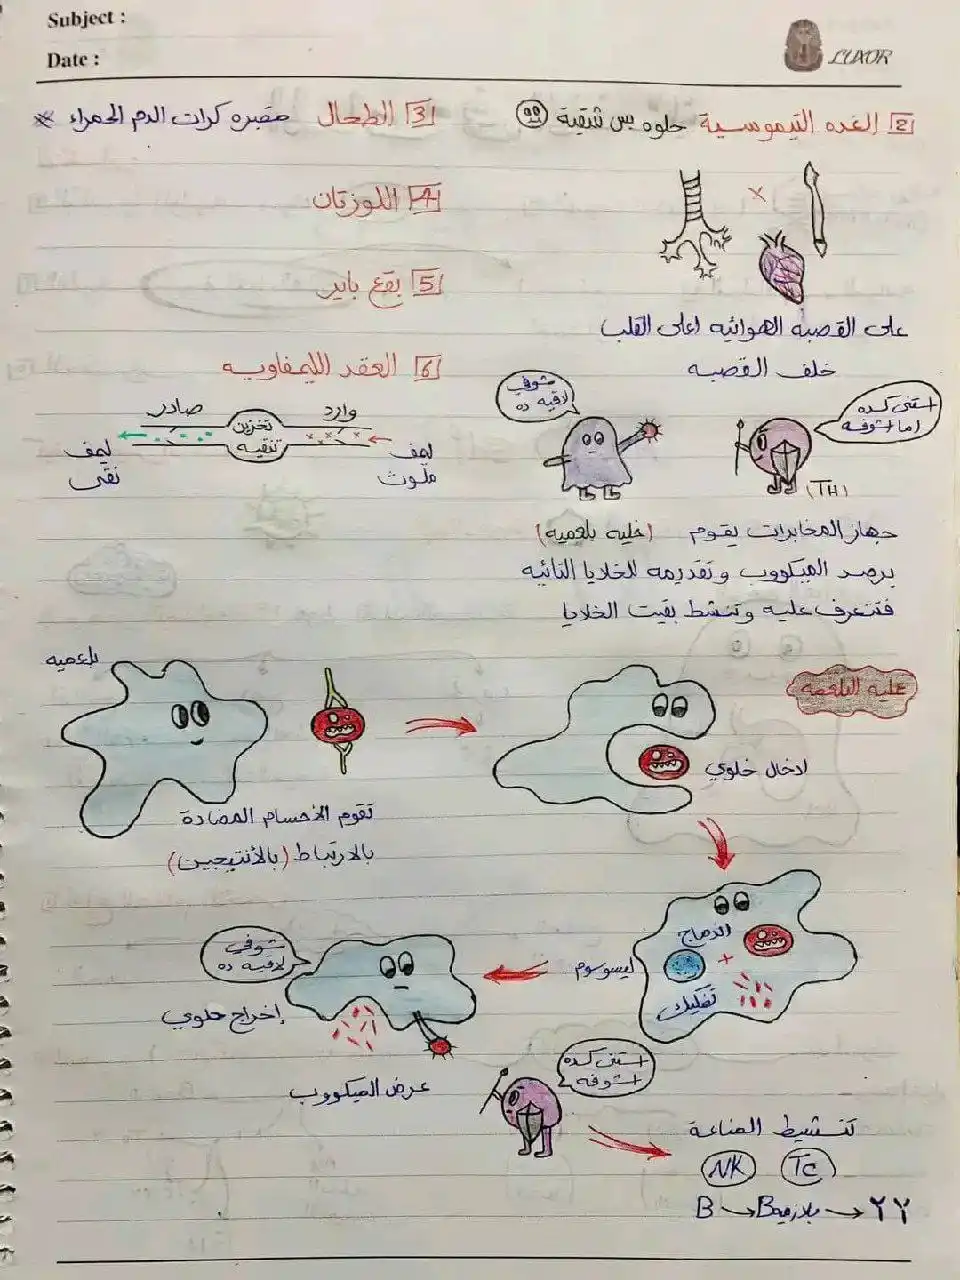 Subject :
Date :
LUXOR
2 الغده التيموسية حلوه بس شقية
3 الطحال مقبره كرات الدم الحمراء
4 اللوزتان
5 بقع باير
6 العقد الليمفاويه
على القصبه الهوائيه اعلى القلب
خلف القصبه
وارد
صادر
تخزين
تنقيه
ليمف
ملوث
ليمف
نقى
شوفي
لاقيه ده
استنى كده
اما اشوفه
(TH)
جهاز المخابرات يقوم (خليه بلعميه)
برصد الميكروب وتقديمه للخلايا التائيه
فتتعرف عليه وتنشط بقيت الخلايا
عليه البلعمه
بلعميه
تقوم الأجسام المضادة
بالارتباط (بالأنتيجين)
ادخال خلوي
اندماج
ليسوسوم
+
تفكيك
شوفي
لاقيه ده
إخراج خلوي
عرض الميكروب
استنى كده
اشوفه
تنشيط المناعة
NK Tc
B → B بلازميه → YY